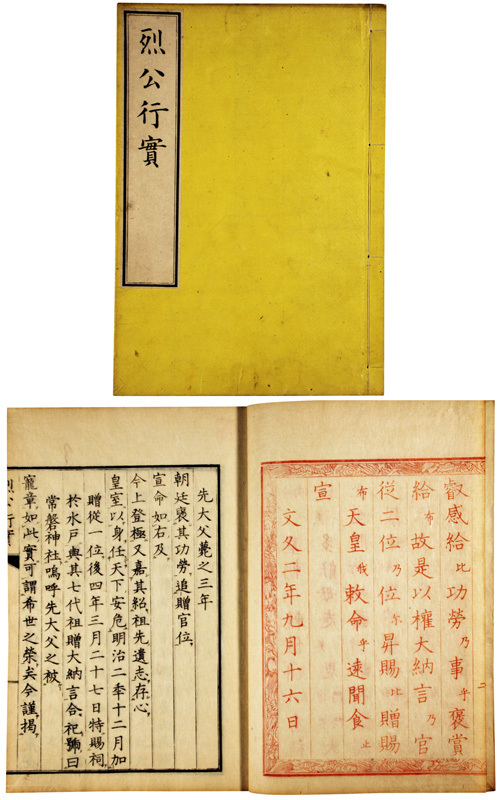 烈公行實
叡感給比功勞乃事乎褒賞
給布故是以權大納言乃官
從二位乃位尓昇賜比贈賜
布天皇我敕命乎遠聞食止
宣
文久二年九月十六日
二
先大父薨之三年
朝廷褒其功勞追贈官位
宣命如右及
今上登極又嘉其紹祖先遺志存心
皇室以身任天下安危明治二年十二月加
贈從一位後四年三月二十七日特賜祠
於水戸與其七代祖贈大納言合祀號曰
常磐神社嗚呼先大父之被
寵章如此實可謂希世之榮矣今謹揭
烈公行實